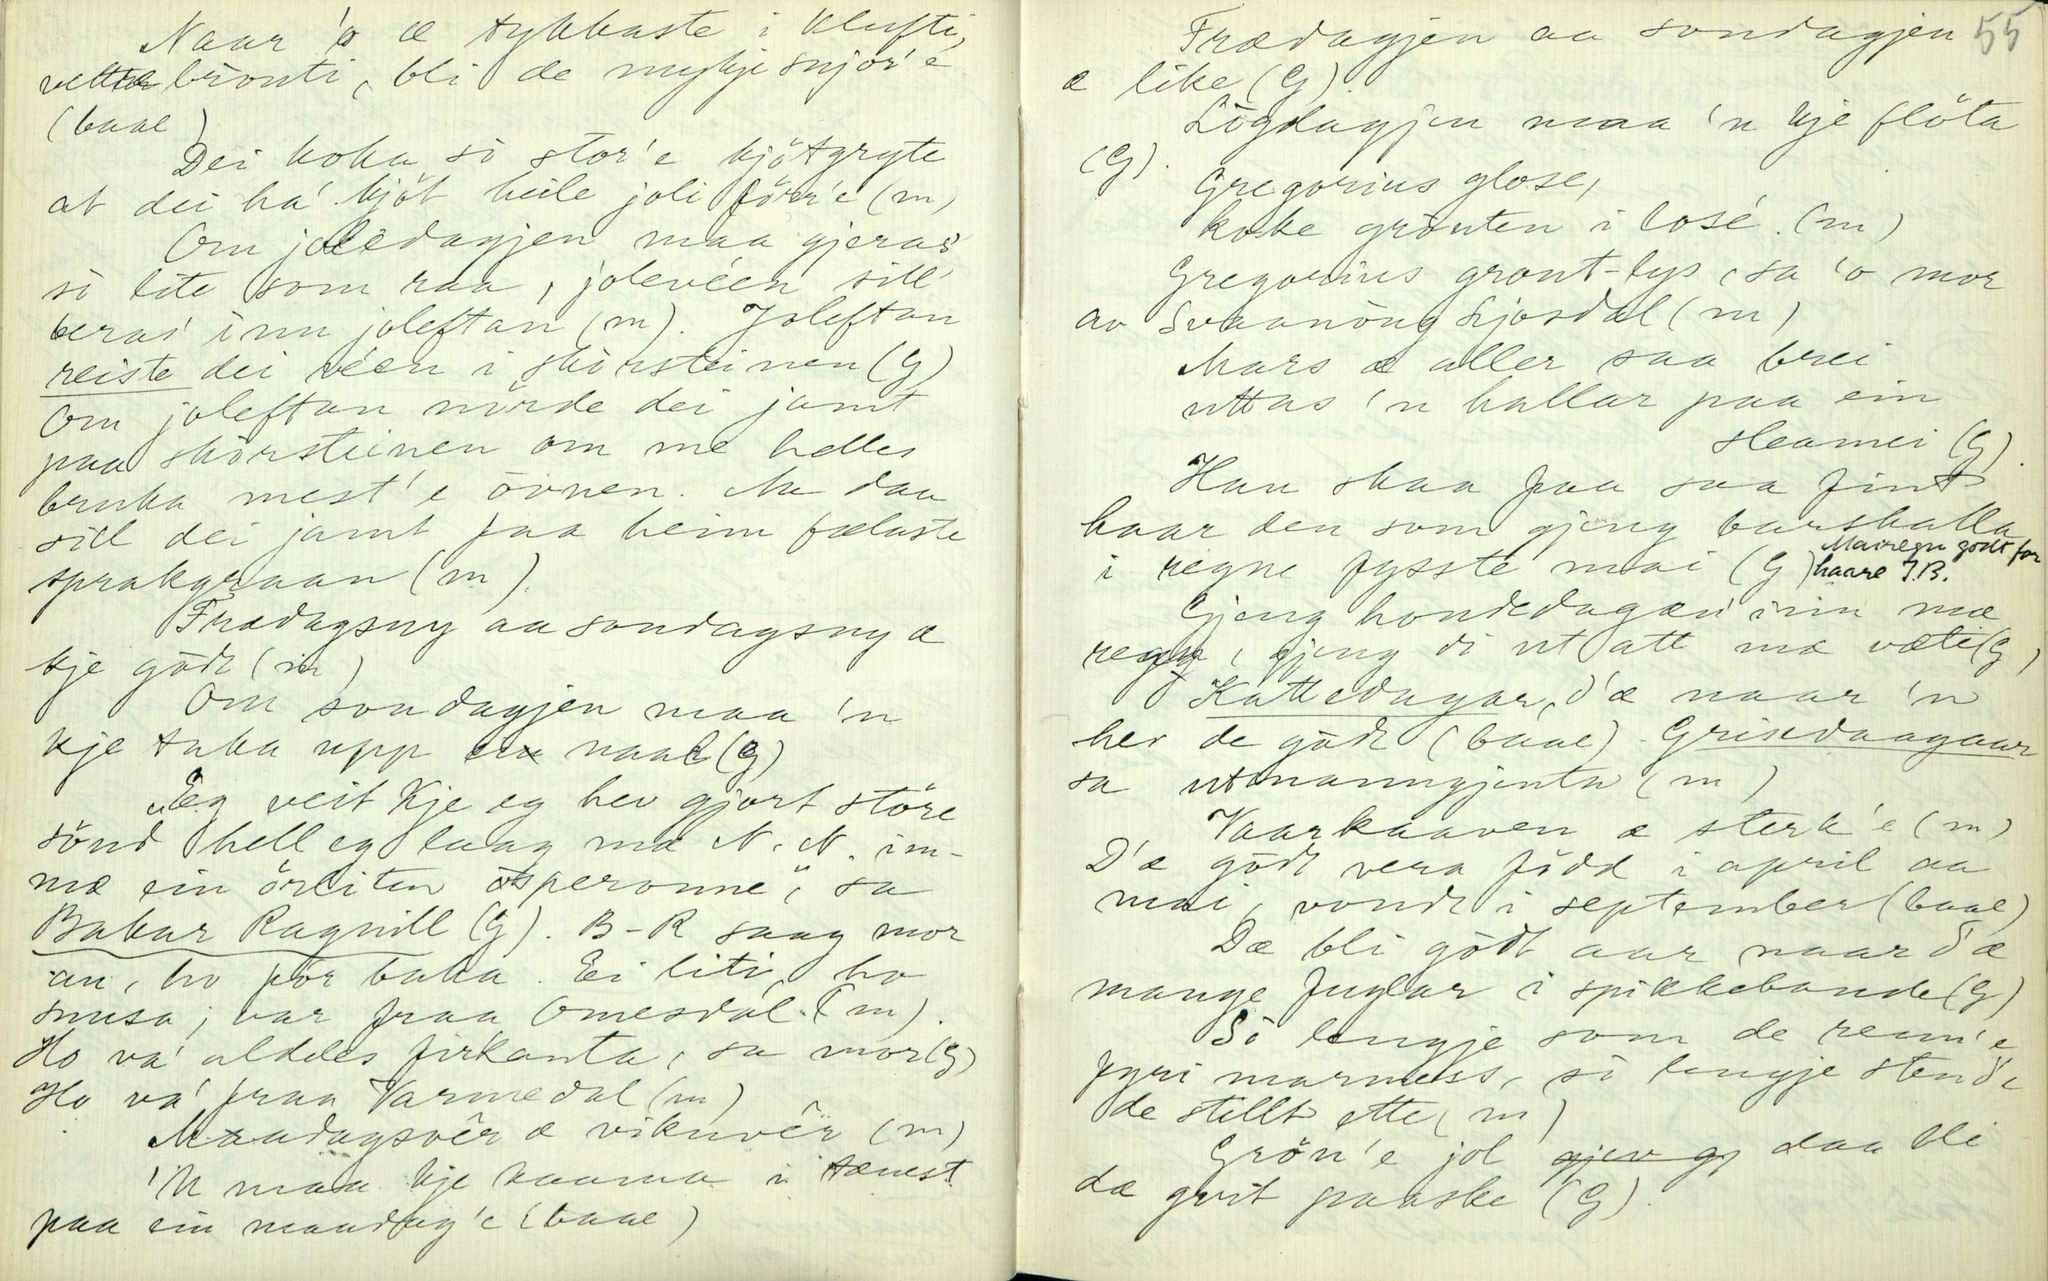 Naar 'o æ tykkaste i klufti,
vette brönti, bli de mykje snjor'e
(baae)
Dei koka so stor'e kjötgryte
at dei ha' kjöt heile joli förr'e (m)
Om joledagjen maa gjeras'
so lite som raa, joleveen sill'
beras' inn joleftan (m). Joleftan
reiste dei veen i skorsteinen (G)
Om joleftan nörde dei jamt
paa skorsteinen om me helles
bruka mest'e ovnen. Me daa
sill dei jamt faa heim fælaste
sprakgraan (m)
Frædagsny aa sondagsny æ
kje godt (m)
Om sondagjen maa 'n
kje taka upp ein naal (G)
"Eg veit kje eg hev gjort störe
sönd hell eg laag mæ N. N. im-
mæ ein örliten osperonne", sa
Bakar Ragnill (G). B-R saag mor
an, ho for baka. Ei liti, ho
snusa; var fraa Omesdal. (m).
Ho va' aldeles firkanta, sa mor (G)
Ho va' fraa Varmedal (m)
Maadagsvêr æ vikuvêr (m)
'N maa kje kaama i tænest
paa ein maadag'e (baae)
55
Frædagjen aa sondagjen
æ like (G).
Logdagjen maa 'n kje flöta
(G).
Gregorius glose,
koke grauten i lose. (m)
Gregorius graut-lys, sa 'o mor
av Svaanaug Ljosdal (m)
Mars æ aller saa brei
uttas 'n hallar paa ein
sleamei (G).
Han skaa faa saa fint
haar den som gjeng barskalla
i regne fysste mai (G) Mairegn godt for
haare T.B.
Gjeng hondedagæn' inn mæ
regn, gjeng di ut att mæ væte (G)
Kattedagar, d'æ naar 'n
hev de godt (baae). Grisedaagaar
sa utmanngjenta (m)
Vaarkaaven æ sterk'e (m)
D'æ godt vera född i april aa
mai, vondt i september (baae)
Dæ bli godt aar naar d'æ
mange fuglar i spikkebande (G)
So lengje som de renn'e
fyri marmess, so lengje stend'e
de stillt ette (m)
Grön'e jol gjev gr daa bli
dæ gvit paaske (G).